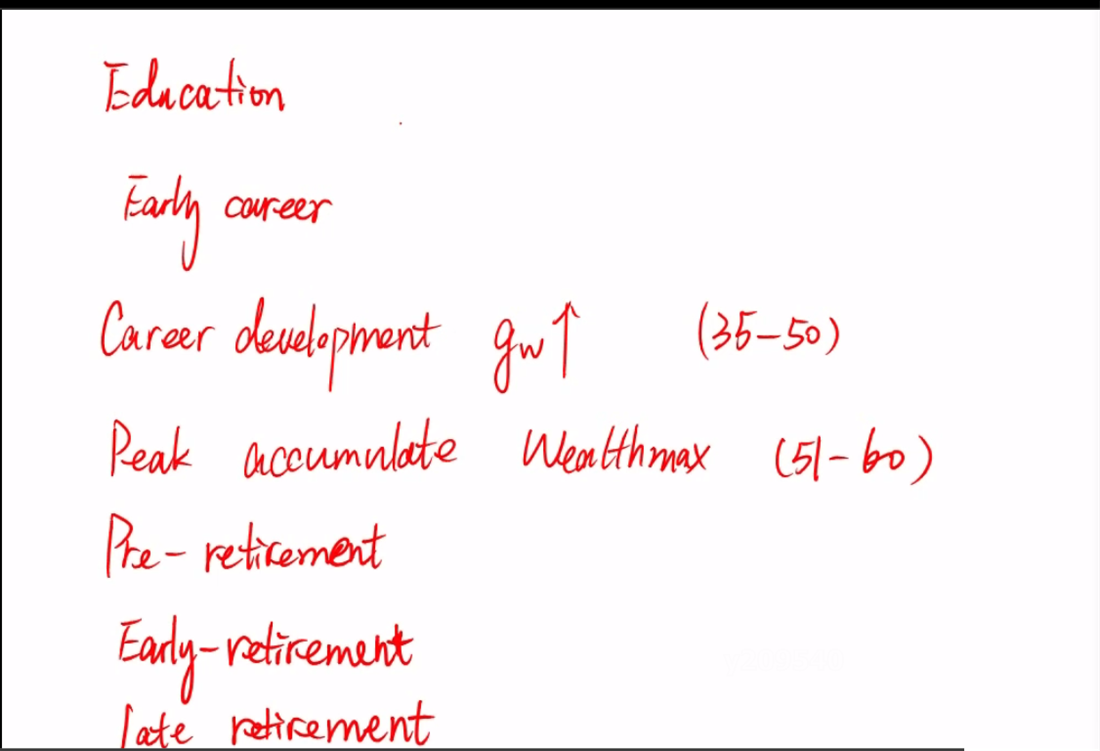 Education
Early career
Career development gw↑ (35-50)
Peak accumulate Wealthmax (51-60)
Pre-retirement
Early-retirement
late retirement